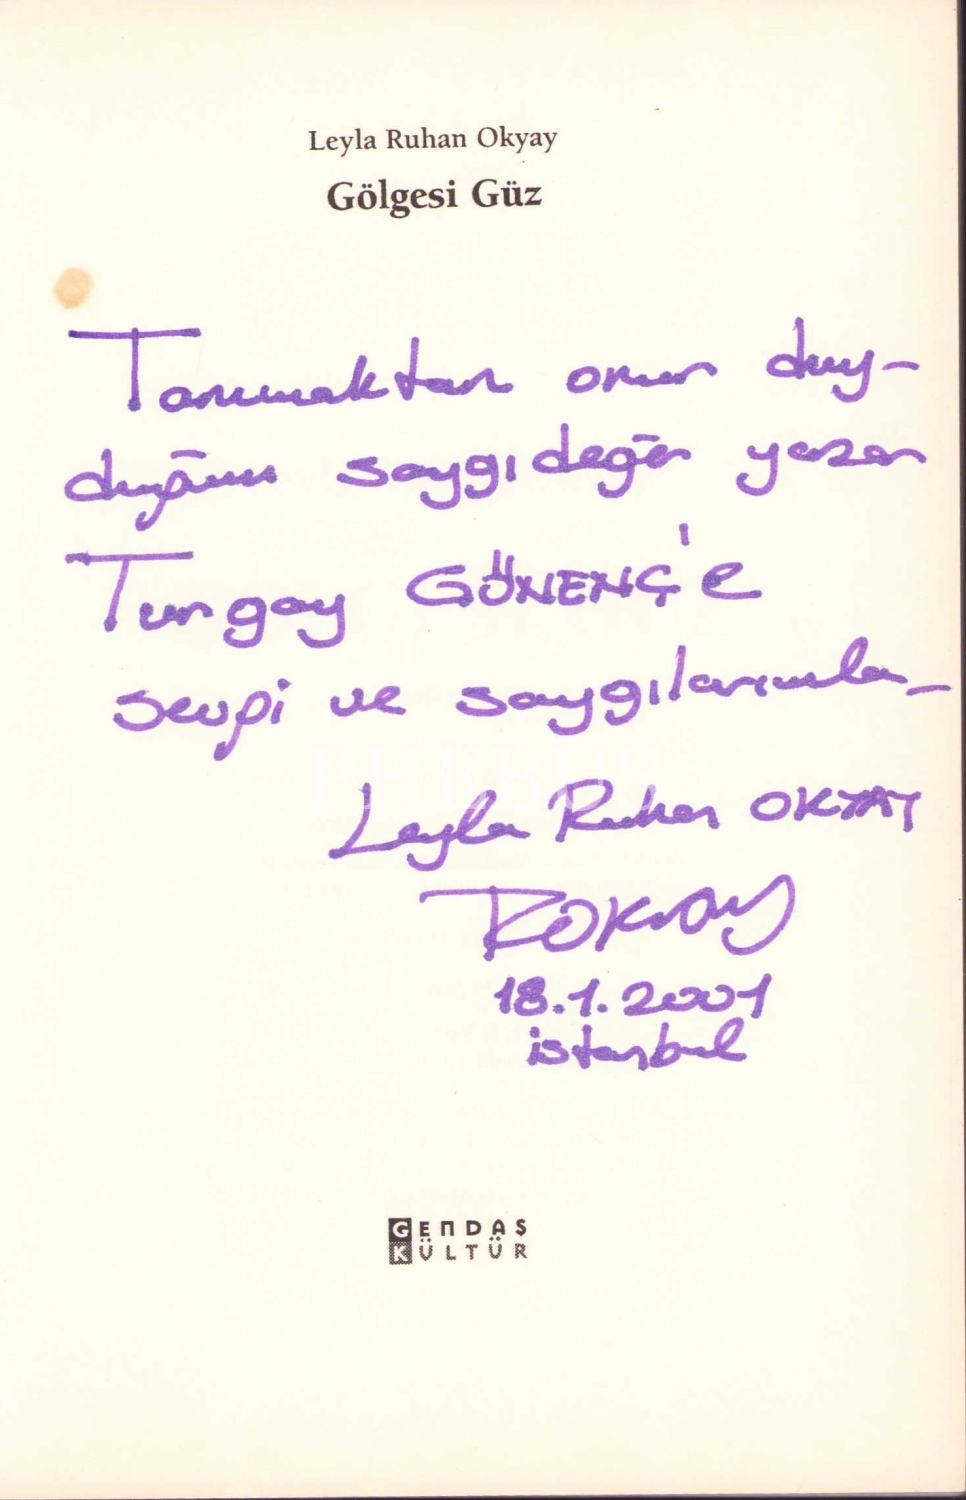 Leyla Ruhan Okyay
Gölgesi Güz
Tanımaktan onur duy-
duğum saygıdeğer yazar
Turgay GÖNENÇ'e
sevgi ve saygılarımla_
PHEBUS
Leyla Ruhan OKYAY
ROKYAY
18.1.2001
istanbul
GENDAŞ
KÜLTÜR